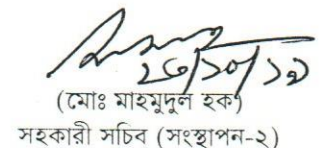 ২৩/১০/১৯
(মোঃ মাহমুদুল হক)
সহকারী সচিব (সংস্থাপন-২)